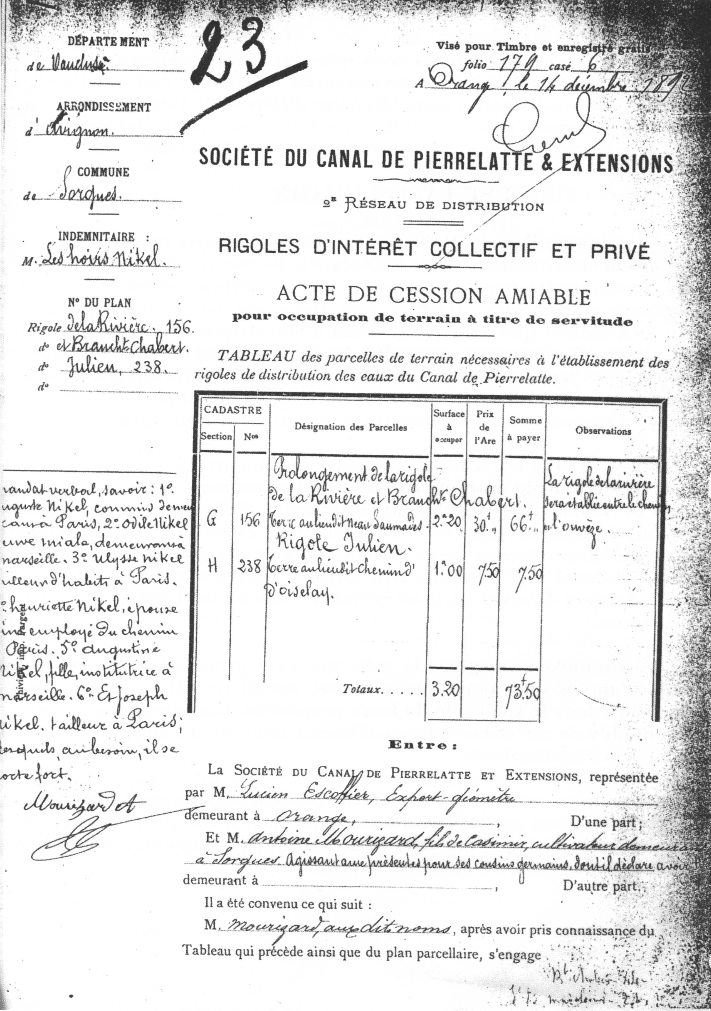 23
DÉPARTEMENT
de Vaucluse
ARRONDISSEMENT
d'Avignon.
COMMUNE
de Sorgues.
INDEMNITAIRE :
M. Les hoirs Nikel.
N° DU PLAN
Rigole de la Rivière. 156.
do et Brancht Chabert.
do Julien, 238.
do
Visé pour Timbre et enregistré gratis
folio 179 case 6
A Orange, le 14 décembre 189
SOCIÉTÉ DU CANAL DE PIERRELATTE & EXTENSIONS
2e RÉSEAU DE DISTRIBUTION
RIGOLES D'INTÉRÊT COLLECTIF ET PRIVÉ
ACTE DE CESSION AMIABLE
pour occupation de terrain à titre de servitude
TABLEAU des parcelles de terrain nécessaires à l'établissement des
rigoles de distribution des eaux du Canal de Pierrelatte.
CADASTRE
Section Nos
Désignation des Parcelles
Surface à occuper
Prix de l'Are
Somme à payer
Observations
Prolongement de la rigole
de la Rivière et Brancht Chabert.
G 156 Terre au lieu dit 2a20 30f" 66f"
Rigole Julien.
H 238 Terre au lieu dit Chemin d'Oiselay. 1a00 7,50 7,50
La rigole de la rivière
sera établie entre le chemin
et l'ouvèze.
Totaux..... 3.20 73f50
mandat verbal, savoir : 1°.
uguste Nikel, commis demeu
rant à Paris, 2° Odile Nikel
euve miala, demeurant à
marseille. 3° Ulysse Nikel
tailleur d'habits à Paris.
° henriette Nikel, épouse
employé du chemin
Paris. 5° augustine
Nikel, fille, institutrice à
marseille. 6° Et Joseph
nikel, tailleur à Paris;
esquels, au besoin, il se
porte fort.
Mourizard A
Entre :
La SOCIÉTÉ DU CANAL DE PIERRELATTE ET EXTENSIONS, représentée
par M. Lucien Escoffier, Expert-géomètre
demeurant à Orange, , D'une part ;
Et M. Antoine Mourizard, fils de Casimir, cultivateur demeurant
à Sorgues. Agissant aux présentes pour ses cousins germains, dont il déclare avoir
demeurant à , D'autre part.
Il a été convenu ce qui suit :
M. Mourizard, aux dits noms, après avoir pris connaissance du
Tableau qui précède ainsi que du plan parcellaire, s'engage